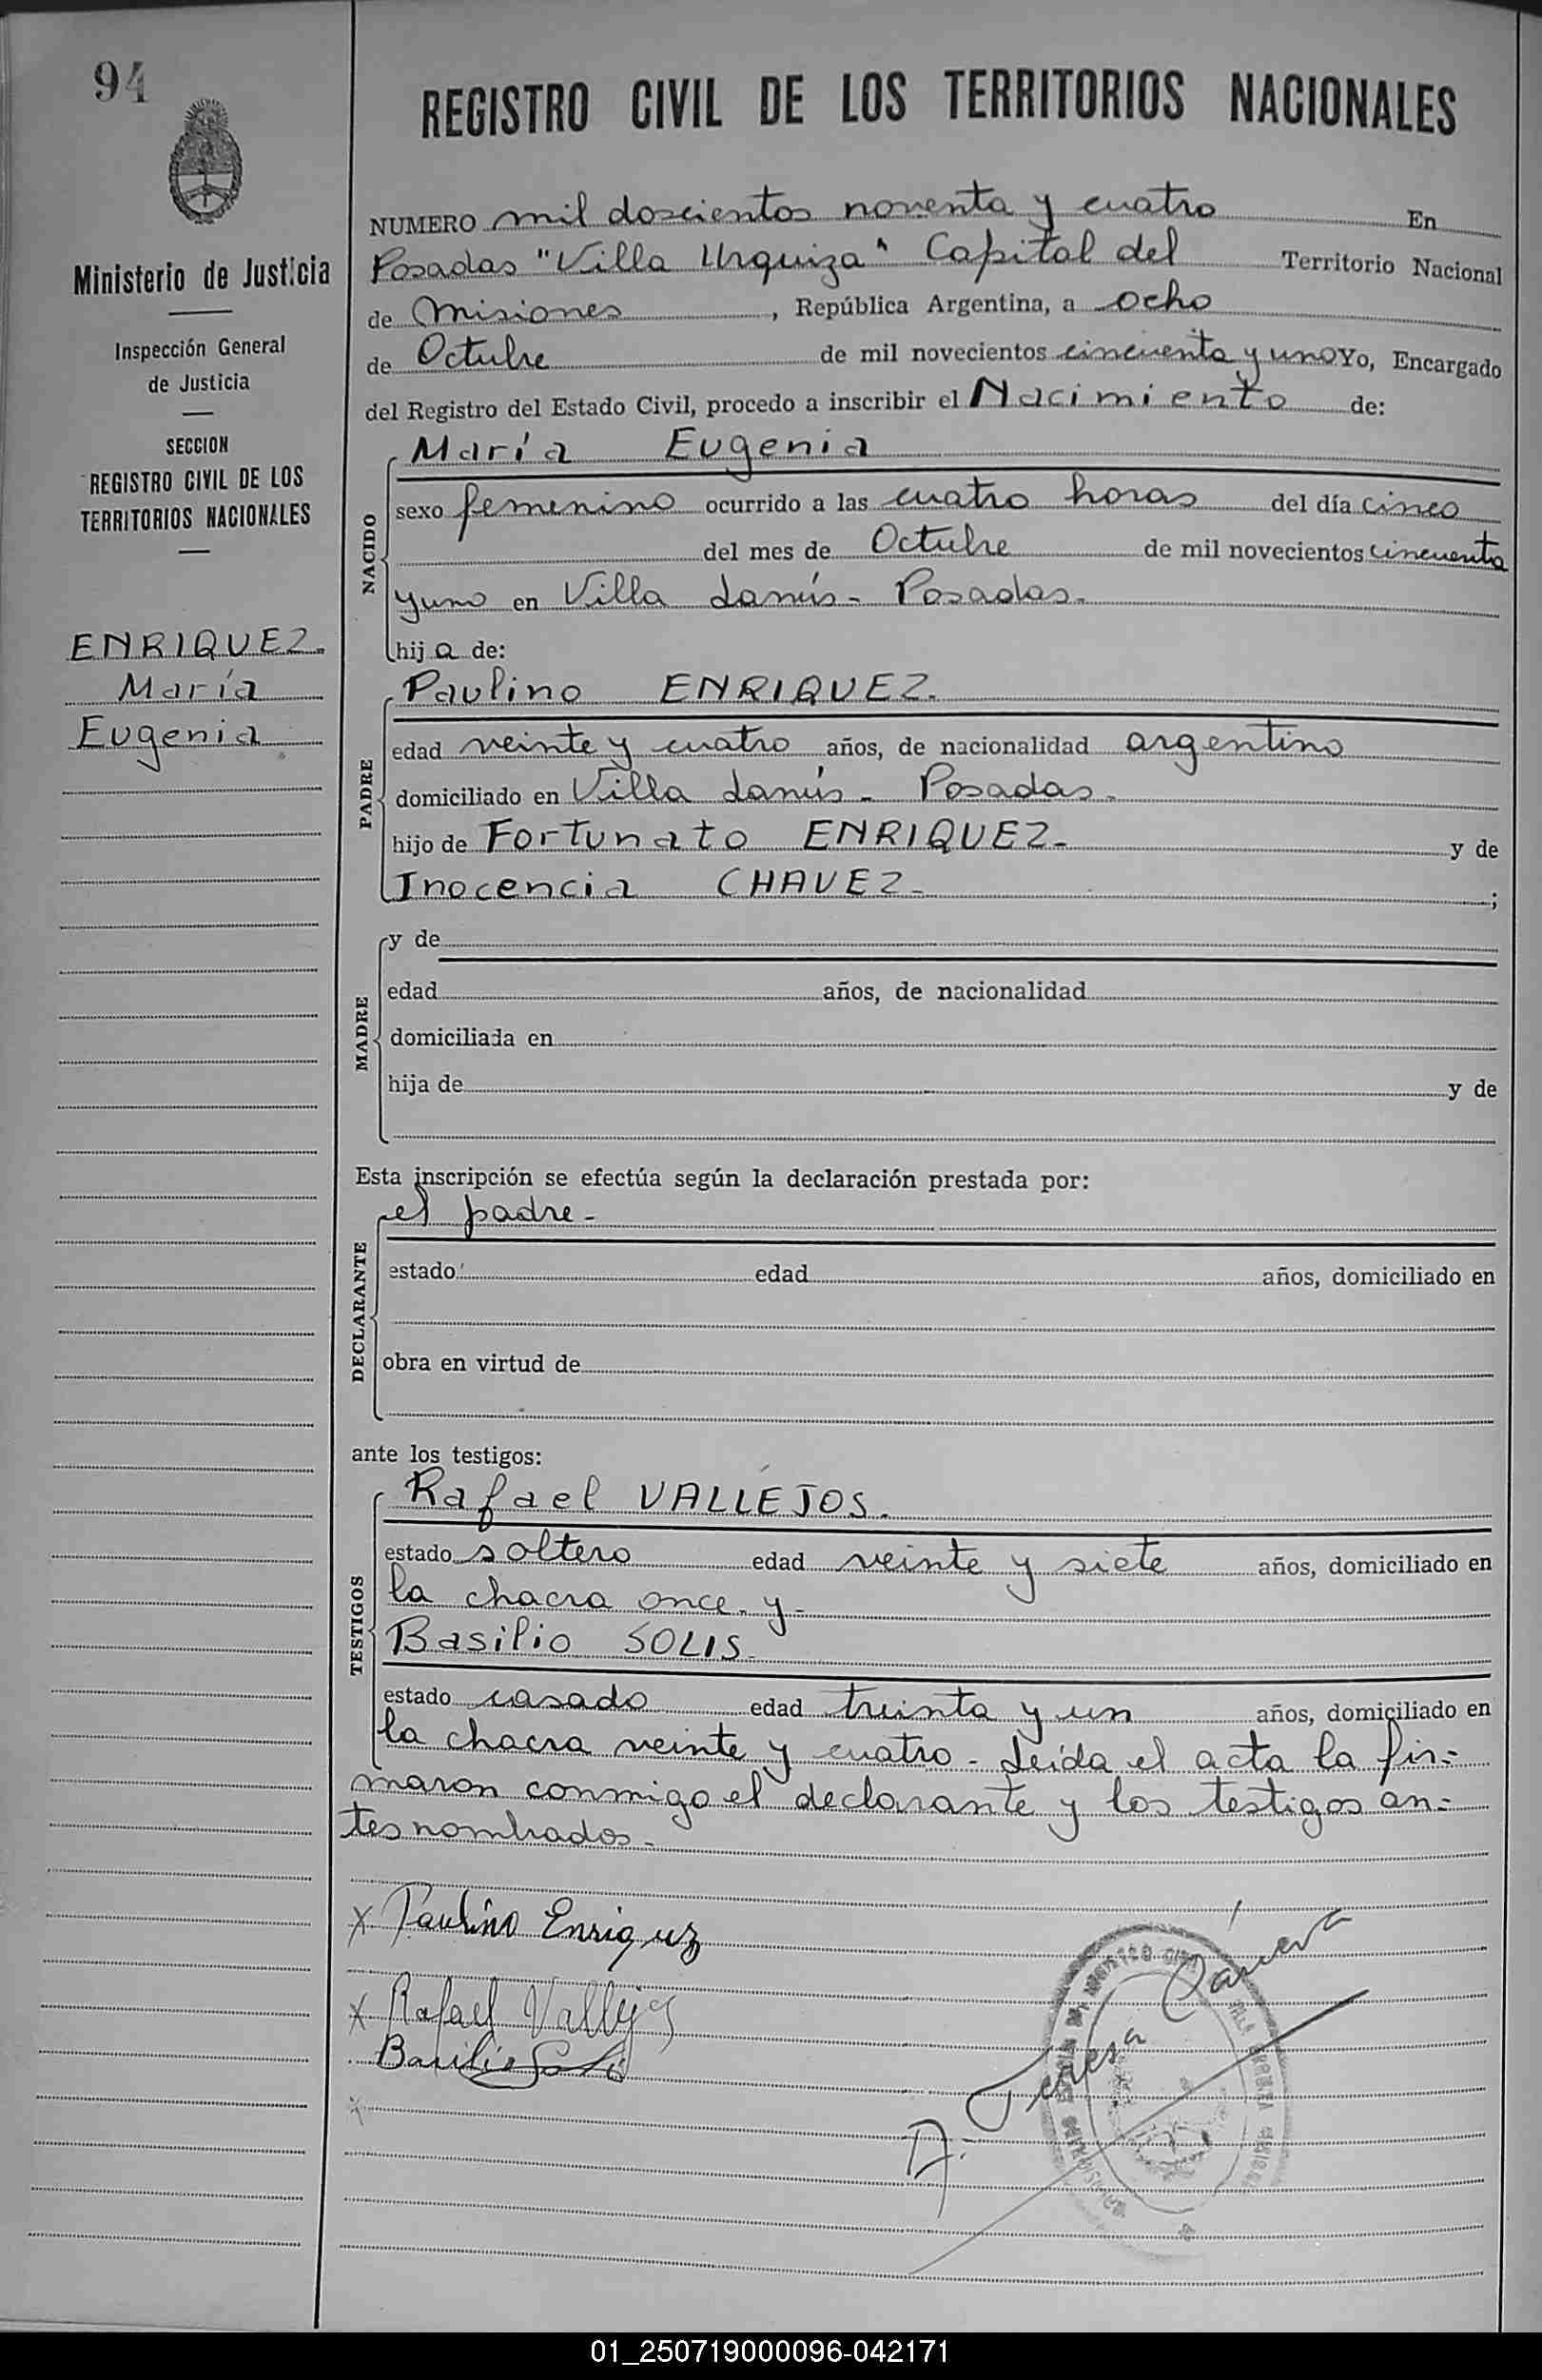 94
REGISTRO CIVIL DE LOS TERRITORIOS NACIONALES
Ministerio de Justicia
Inspección General
de Justicia
SECCION
REGISTRO CIVIL DE LOS
TERRITORIOS NACIONALES
ENRIQUEZ.
María
Eugenia
NUMERO mil doscientos noventa y cuatro En
Posadas "Villa Urquiza" Capital del Territorio Nacional
de Misiones, República Argentina, a ocho
de Octubre de mil novecientos cincuenta y uno Yo, Encargado
del Registro del Estado Civil, procedo a inscribir el Nacimiento de:
NACIDO
María Eugenia
sexo femenino ocurrido a las cuatro horas del día cinco
del mes de Octubre de mil novecientos cincuenta
y uno en Villa Lanús - Posadas.
hija de:
PADRE
Paulino ENRIQUEZ.
edad veinte y cuatro años, de nacionalidad argentino
domiciliado en Villa Lanús - Posadas.
hijo de Fortunato ENRIQUEZ - y de
Inocencia CHAVEZ - ;
MADRE
y de
edad años, de nacionalidad
domiciliada en
hija de y de
Esta inscripción se efectúa según la declaración prestada por:
DECLARANTE
el padre -
estado edad años, domiciliado en
obra en virtud de
ante los testigos:
TESTIGOS
Rafael VALLEJOS.
estado soltero edad veinte y siete años, domiciliado en
la chacra once. y -
Basilio SOLIS.
estado casado edad treinta y un años, domiciliado en
la chacra veinte y cuatro - Leída el acta la fir-
maron conmigo el declarante y los testigos an-
tes nombrados -
x Paulino Enriquez
x Rafael Vallejos
Basilio Solis
01_250719000096-042171